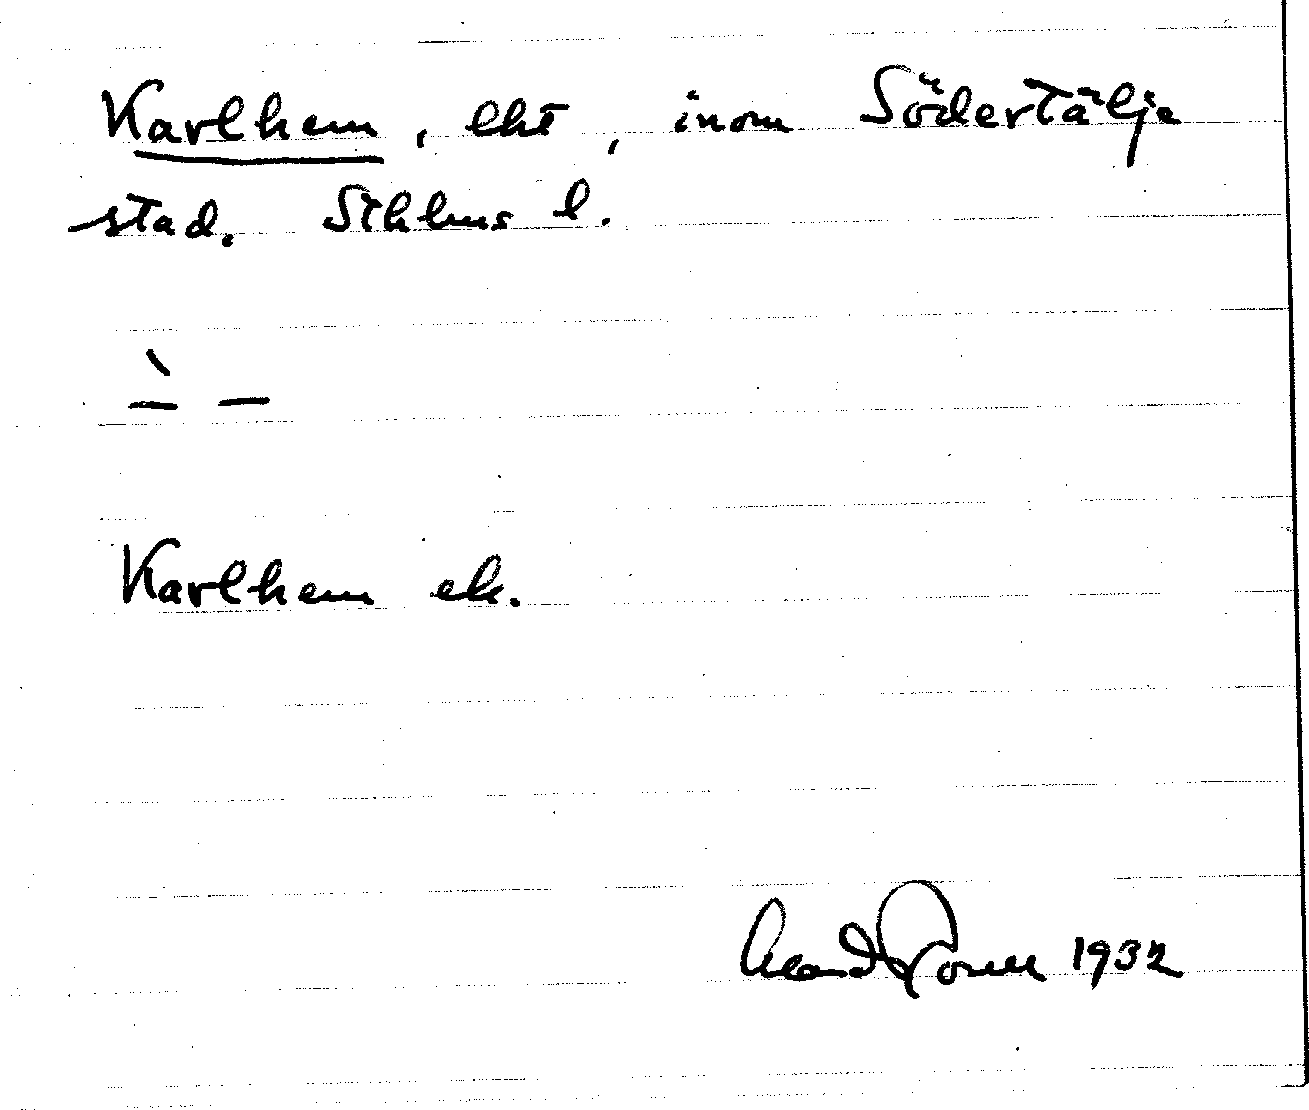 Karlhem, lht, inom Södertälje
stad. Sthlms l.
Karlhem ek.
1932